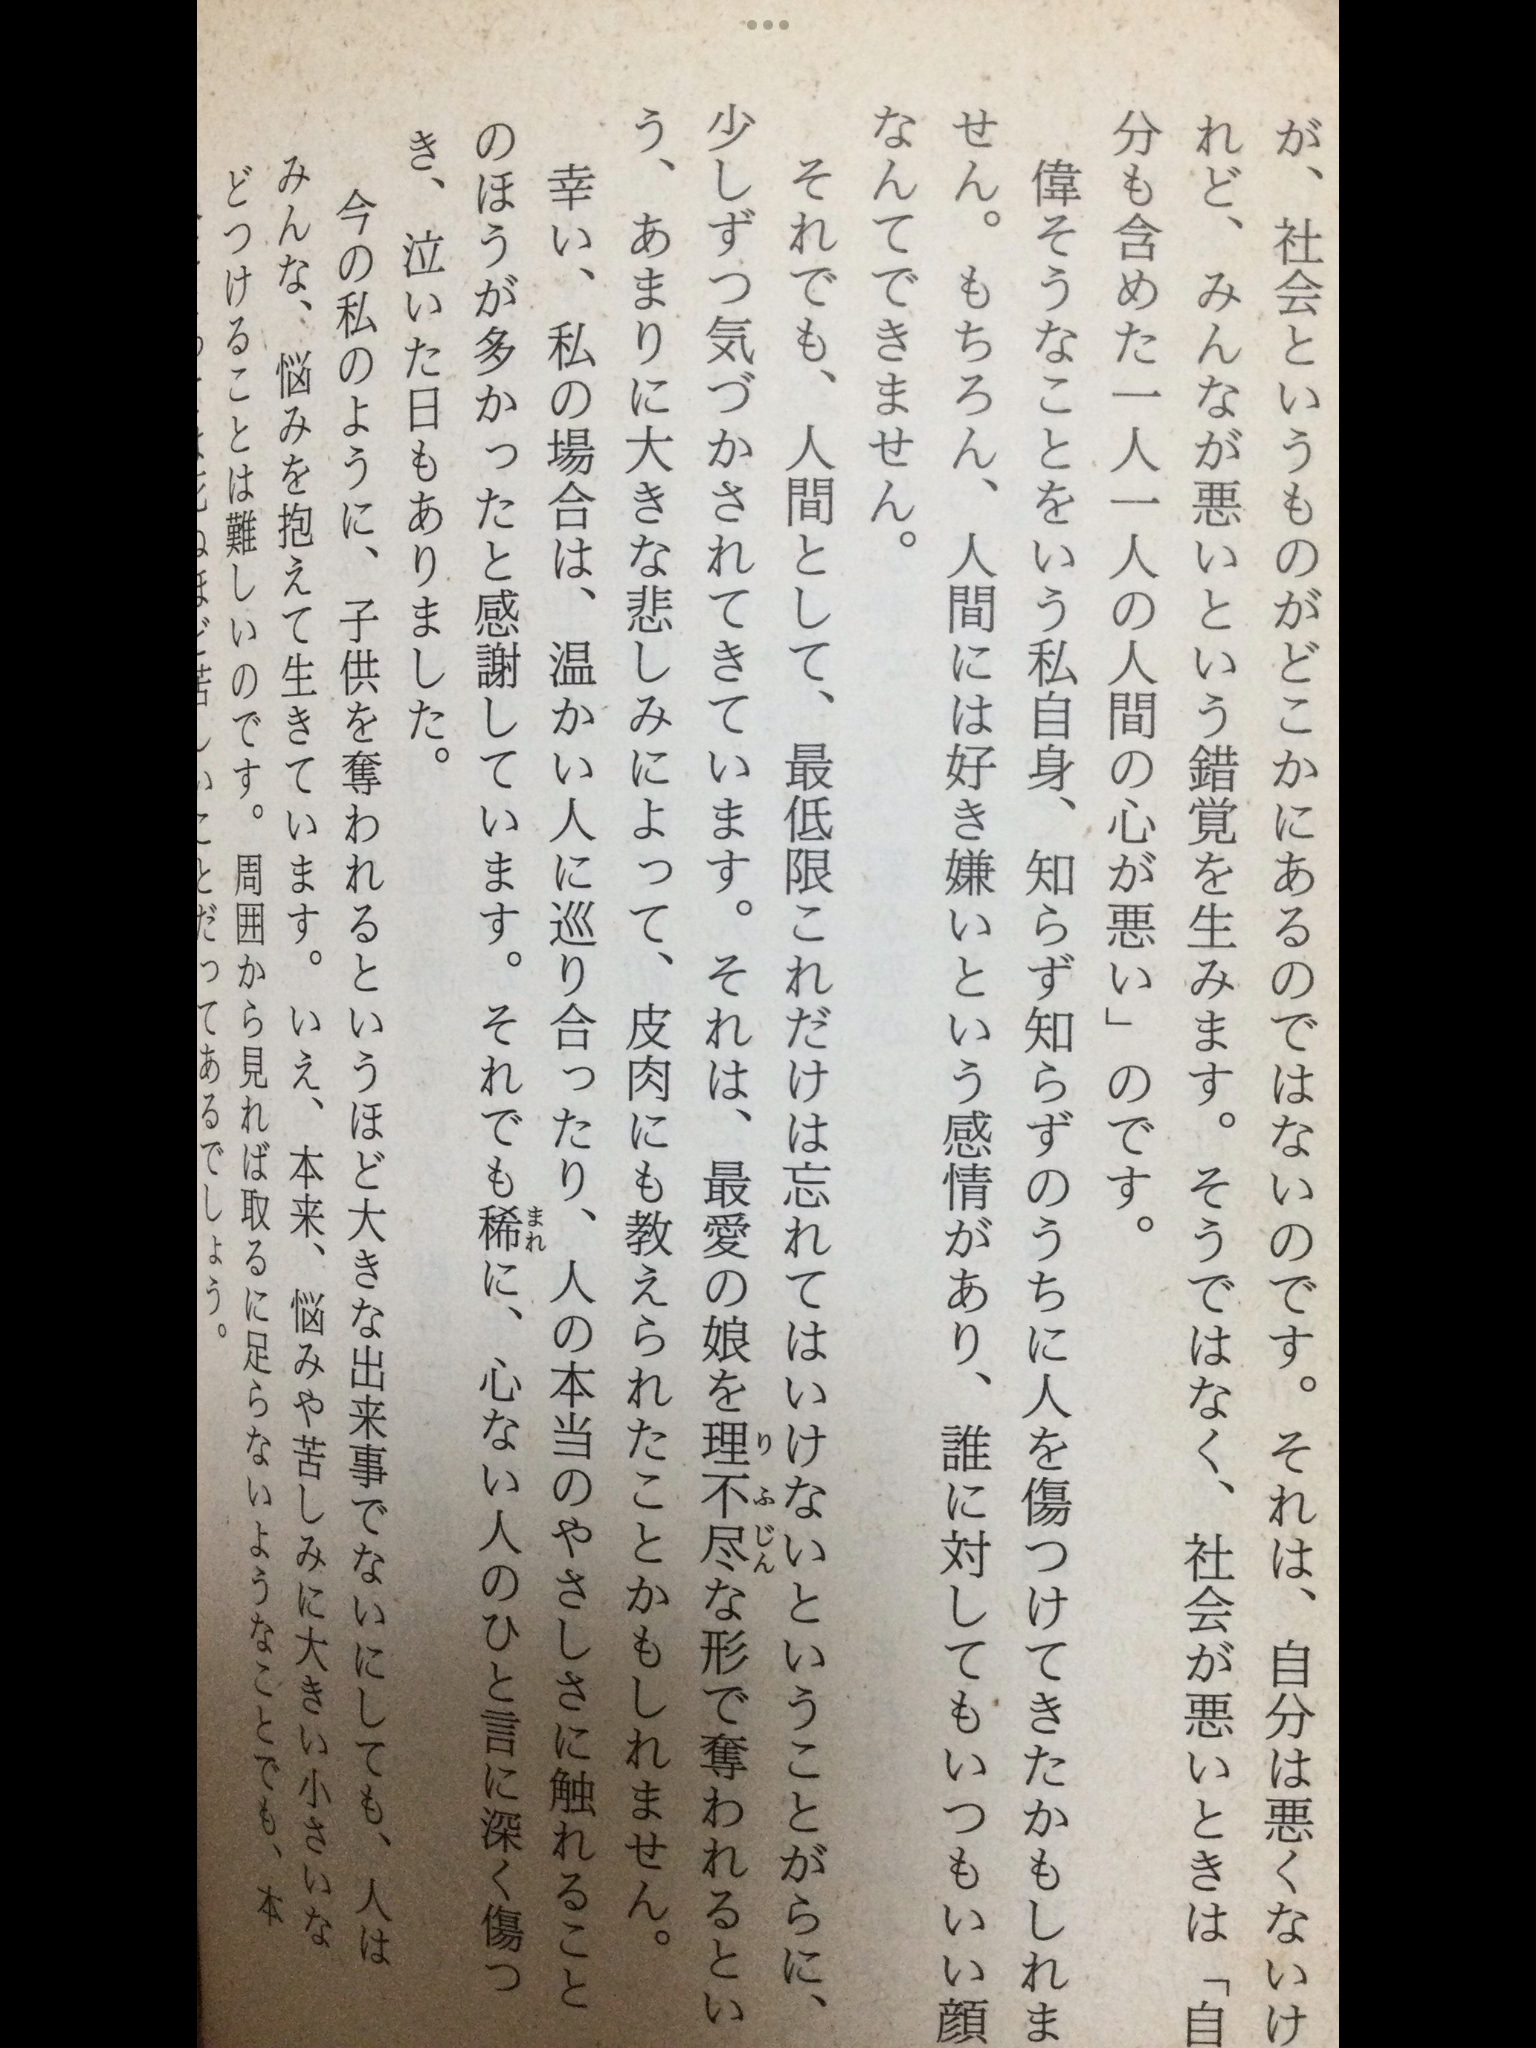 が、社会というものがどこかにあるのではないのです。それは、自分は悪くないけ
れど、みんなが悪いという錯覚を生みます。そうではなく、社会が悪いときは「自
分も含めた一人一人の人間の心が悪い」のです。
偉そうなことをいう私自身、知らず知らずのうちに人を傷つけてきたかもしれま
せん。もちろん、人間には好き嫌いという感情があり、誰に対してもいつもいい顔
なんてできません。
それでも、人間として、最低限これだけは忘れてはいけないということがらに、
少しずつ気づかされてきています。それは、最愛の娘を理不尽な形で奪われるとい
う、あまりに大きな悲しみによって、皮肉にも教えられたことかもしれません。
幸い、私の場合は、温かい人に巡り合ったり、人の本当のやさしさに触れること
のほうが多かったと感謝しています。それでも稀に、心ない人のひと言に深く傷つ
き、泣いた日もありました。
今の私のように、子供を奪われるというほど大きな出来事でないにしても、人は
みんな、悩みを抱えて生きています。いえ、本来、悩みや苦しみに大きい小さいな
どつけることは難しいのです。周囲から見れば取るに足らないようなことでも、本
ほど苦しいことだってあるでしょう。